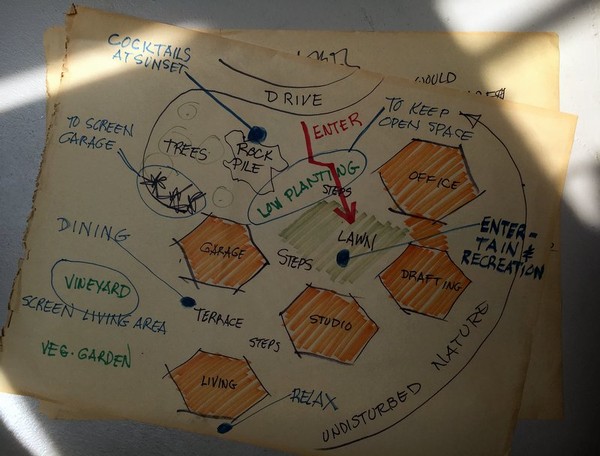 COCKTAILS
AT SUNSET
WOULD
DRIVE
TO SCREEN
GARAGE
TREES
ROCK
PILE
ENTER
TO KEEP
OPEN SPACE
LOW PLANTING
STEPS
OFFICE
DINING
GARAGE
STEPS
LAWN
ENTER-
TAIN &
RECREATION
DRAFTING
VINEYARD
SCREEN LIVING AREA
TERRACE
STUDIO
VEG. GARDEN
STEPS
LIVING
RELAX
UNDISTURBED NATURE